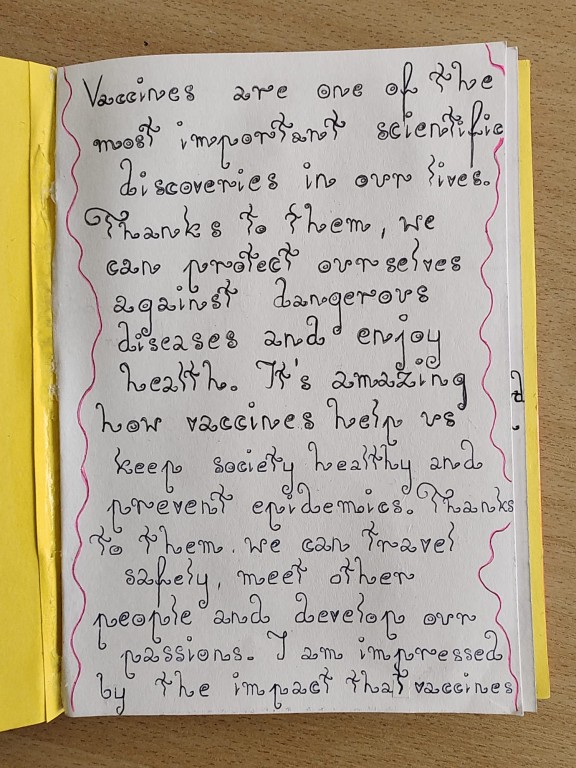 Vaccines are one of the
most important scientific
discoveries in our lives.
Thanks to them, we
can protect ourselves
against dangerous
diseases and enjoy
health. It's amazing
how vaccines help us
keep society healthy and
prevent epidemics. Thanks
to them. we can travel
safely, meet other
people and develop our
passions. I am impressed
by the impact that vaccines